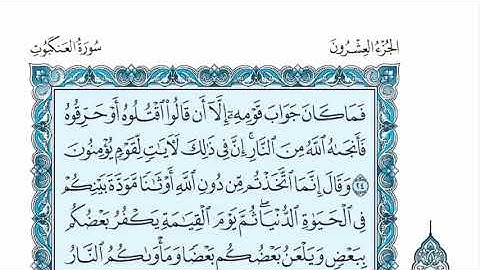 الجُزْءُ العِشْرُونَ
سُورَةُ العَنكَبُوتِ
فَمَا كَانَ جَوَابَ قَوْمِهِۦٓ إِلَّآ أَن قَالُوا۟ ٱقْتُلُوهُ أَوْ حَرِّقُوهُ
فَأَنجَىٰهُ ٱللَّهُ مِنَ ٱلنَّارِ ۚ إِنَّ فِى ذَٰلِكَ لَـَٔايَـٰتٍ لِّقَوْمٍ يُؤْمِنُونَ
٢٤ وَقَالَ إِنَّمَا ٱتَّخَذْتُم مِّن دُونِ ٱللَّهِ أَوْثَـٰنًا مَّوَدَّةَ بَيْنِكُمْ
فِى ٱلْحَيَوٰةِ ٱلدُّنْيَا ۖ ثُمَّ يَوْمَ ٱلْقِيَـٰمَةِ يَكْفُرُ بَعْضُكُم
بِبَعْضٍ وَيَلْعَنُ بَعْضُكُم بَعْضًا وَمَأْوَىٰكُمُ ٱلنَّارُ